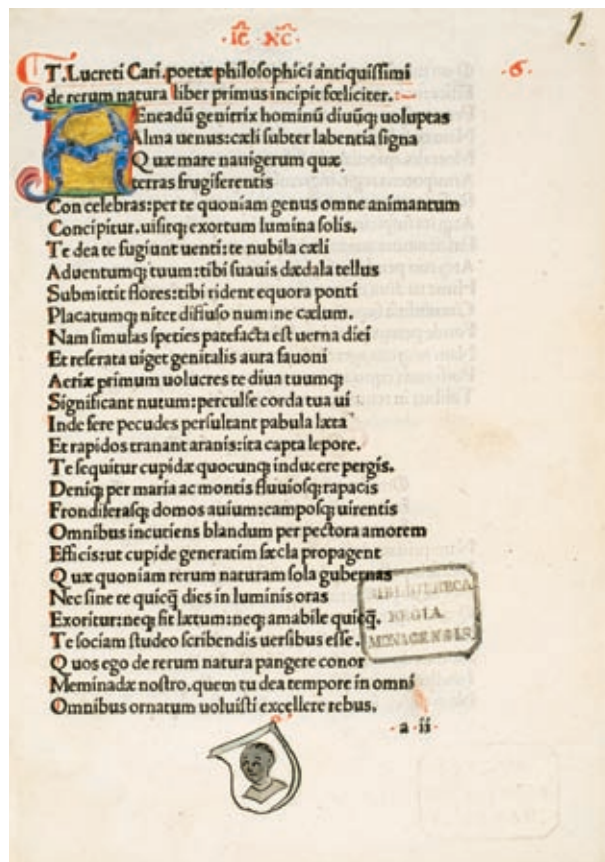 ·iħc· ·xp̄c·
1.
T. Lucreti Cari. poetæ philosophici antiquissimi
·6·
de rerum natura liber primus incipit fœliciter.
AEneadū genitrix hominū diuūq; uoluptas
Alma uenus: cæli subter labentia signa
Quæ mare nauigerum quæ
terras frugiferentis
Concelebras: per te quoniam genus omne animantum
Concipitur. uisitq; exortum lumina solis.
Te dea te fugiunt uenti: te nubila cæli
Aduentumq; tuum: tibi suauis dædala tellus
Submittit flores: tibi rident equora ponti
Placatumq; nitet diffuso numine cælum.
Nam simulas speties patefacta est uerna diei
Et reserata uiget genitalis aura fauoni
Aeriæ primum uolucres te diua tuumq;
Significant nutum: perculse corda tua ui
Inde fere pecudes persultant pabula læta
Et rapidos tranant amnis: ita capta lepore.
Te sequitur cupidæ quocunq; inducere pergis.
Deniq; per maria ac montis fluuiosq; rapacis
Frondiferasq; domos auium: camposq; uirentis
Omnibus incutiens blandum per pectora amorem
Efficis: ut cupide generatim sæcla propagent
Quæ quoniam rerum naturam sola gubernas
Nec sine te quicq̄ dies in luminis oras
Exoritur: neq; fit lætum: neq; amabile quicq̄.
Te sociam studeo scribendis uersibus esse.
Quos ego de rerum natura pangere conor
Meminadæ nostro. quem tu dea tempore in omni
Omnibus ornatum uoluisti excellere rebus.
a ii
BIBLIOTHECA
REGIA
MONACENSIS